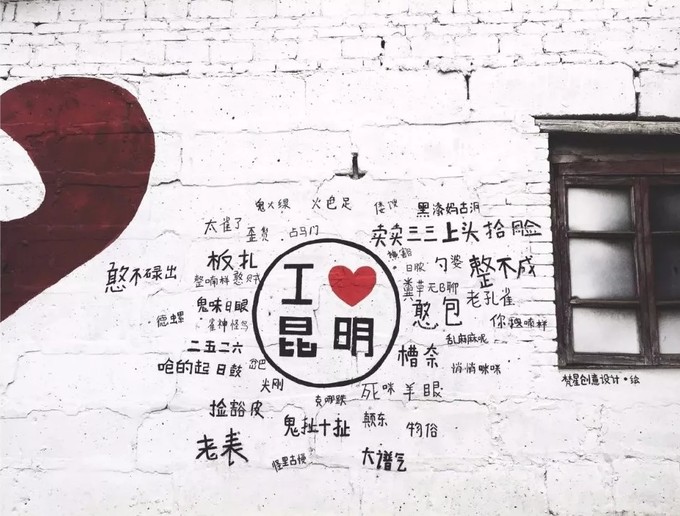 鬼火绿 火巴足 倭
黑漆妈古洞
太雀了
歪
占马门
卖卖三三上头拾脸
憨不碌出
板扎
工❤
昆明
日脓
勺婆
整不成
整喃样
憨
粪草
无B聊
老孔雀
鬼味日眼
雀神怪鸟
憨包
你
喃样
德螺
二五二六
乱麻麻呢
呛的起
日鼓
岔巴
槽奈
悄悄咪咪
尖刚
死咪羊眼
梵星创意设计·绘
捡豁皮
克哪跌
鬼扯十扯
颠东
物俗
老表
怪里古
大谱气